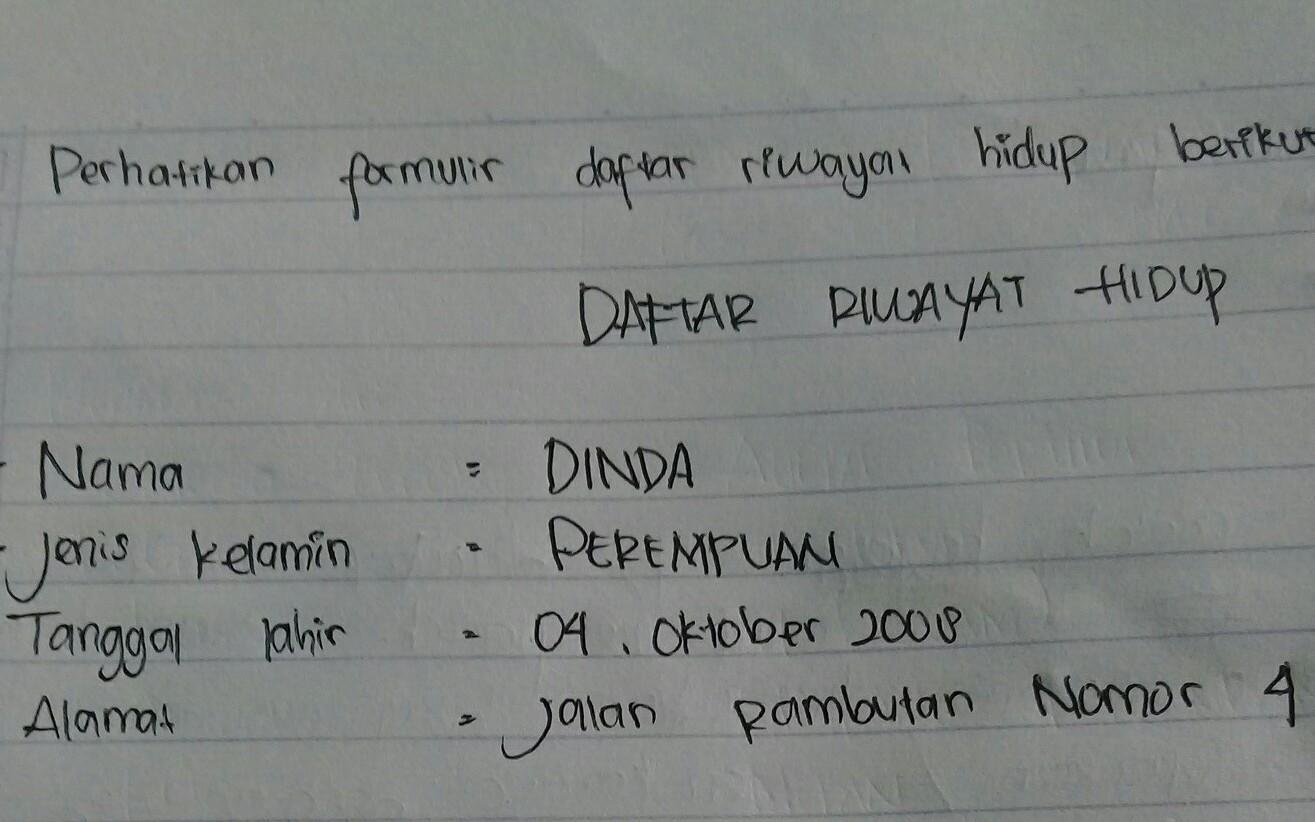 Perhatikan formulir daftar riwayat hidup berikut
DAFTAR RIWAYAT HIDUP
- Nama = DINDA
- Jenis kelamin = PEREMPUAN
Tanggal lahir = 04. Oktober 2008
Alamat = Jalan Rambutan Nomor 4